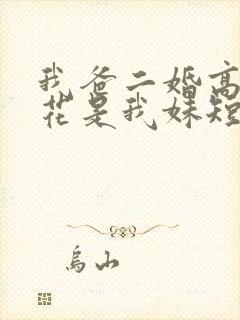 我爸二婚高
花是我妹短
乌山